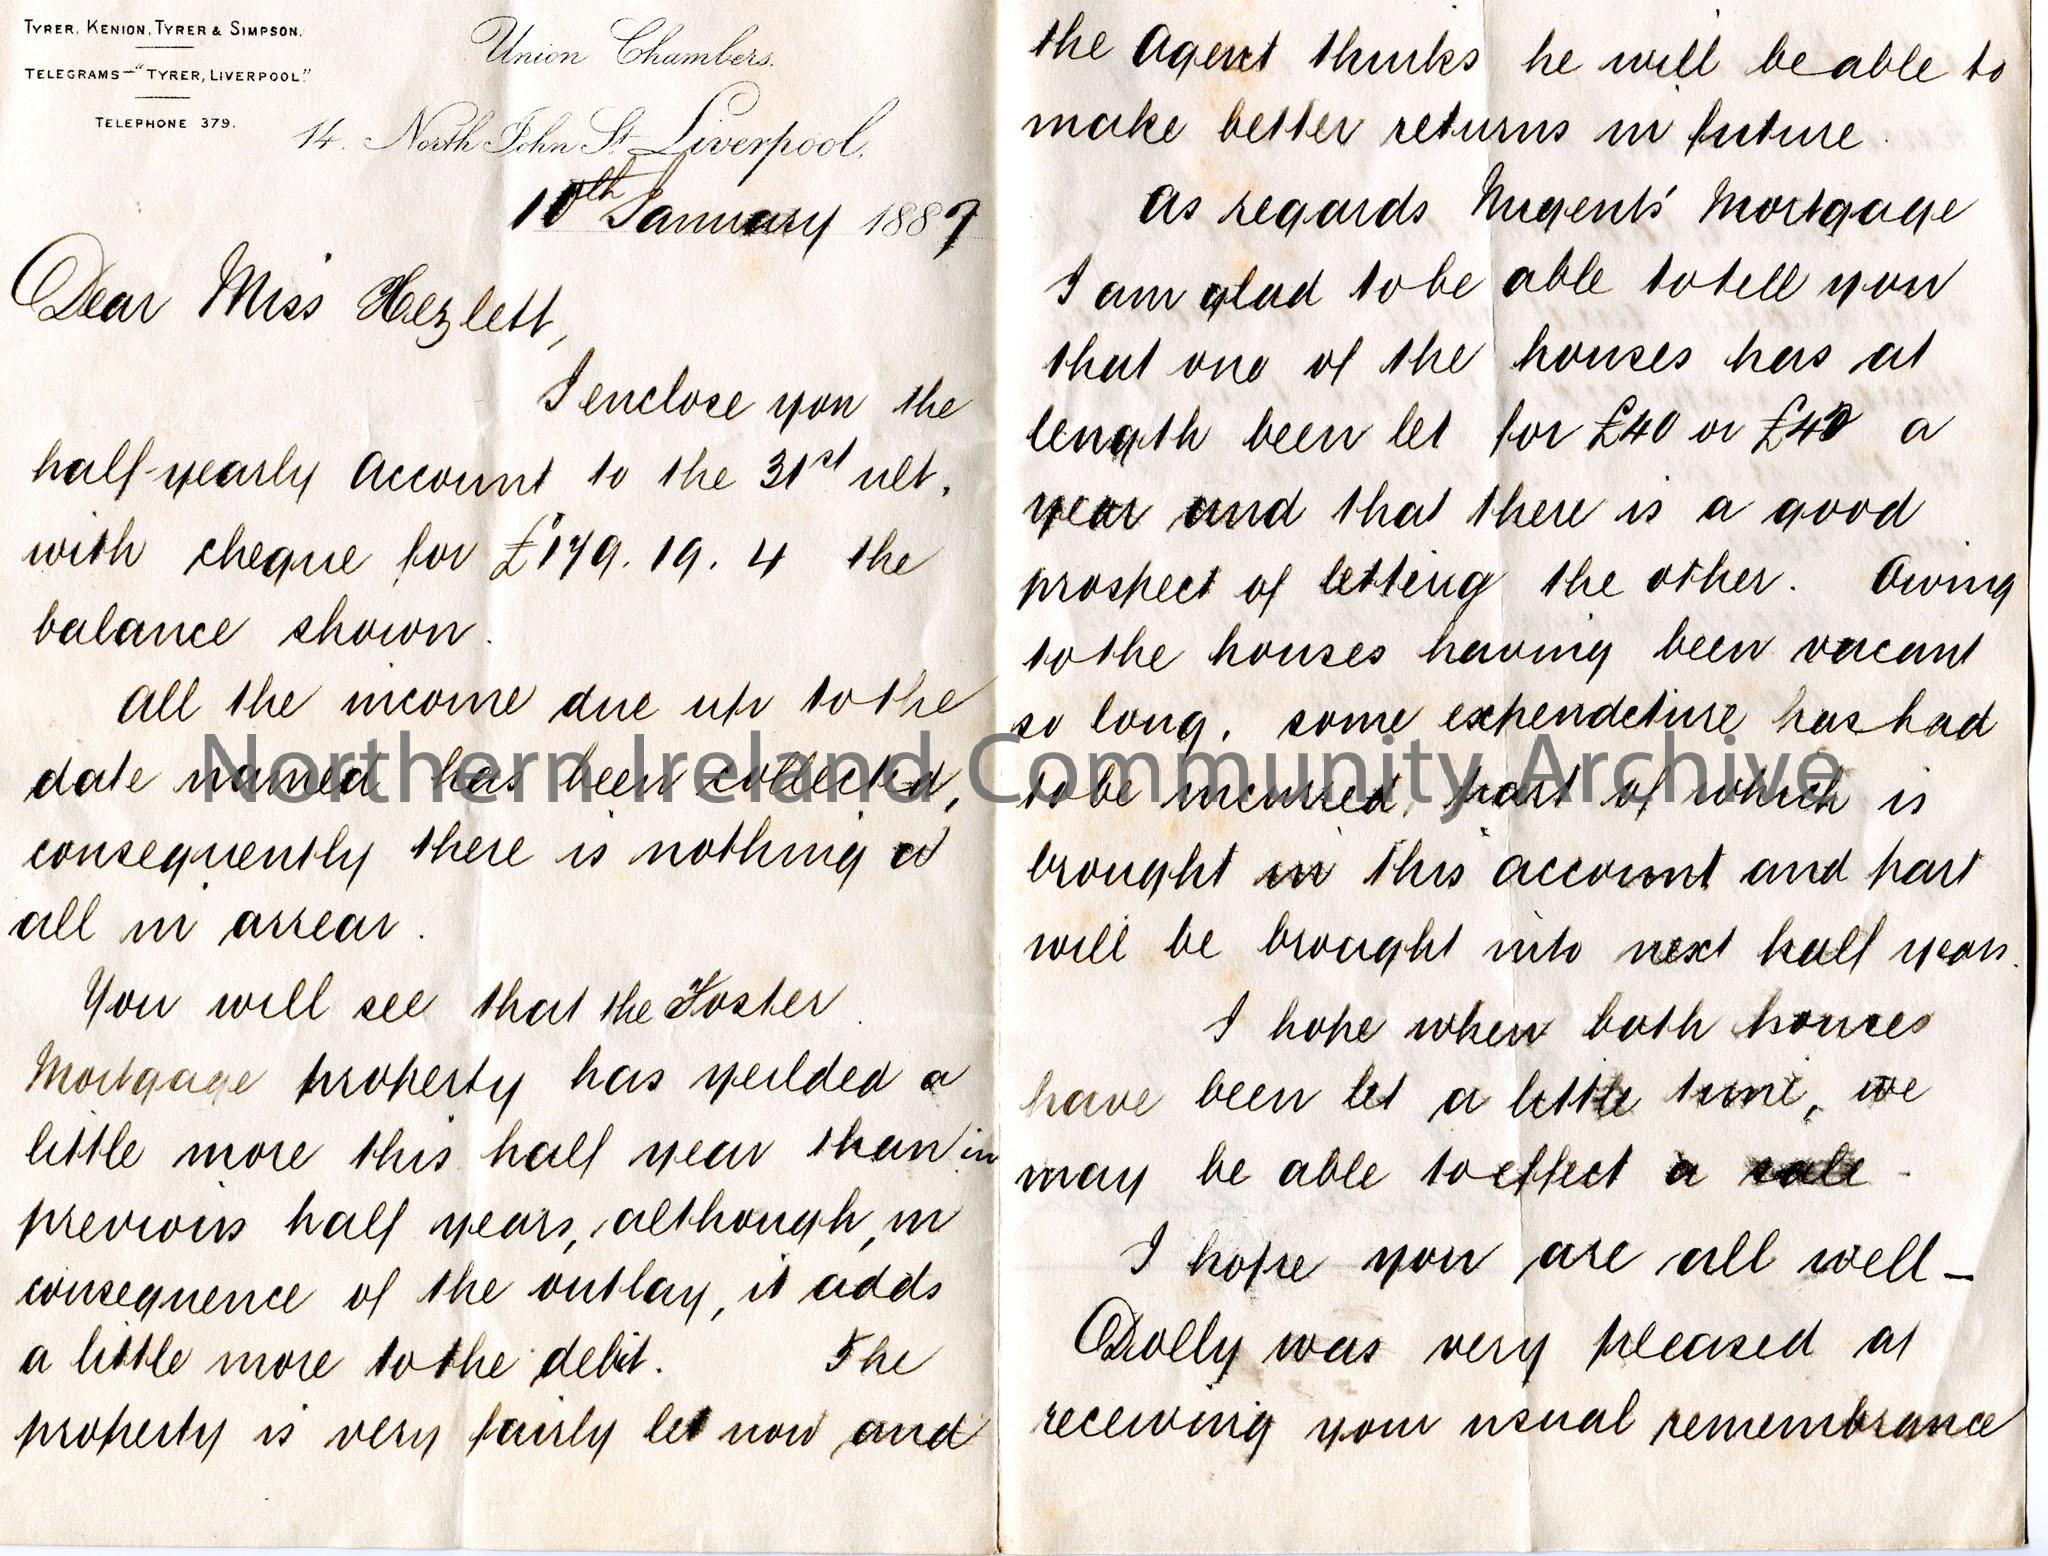 TYRER, KENION, TYRER & SIMPSON.
TELEGRAMS—"TYRER, LIVERPOOL."
TELEPHONE 379.
Union Chambers.
14. North John St. Liverpool,
10th January 1887
Dear Miss Hezlett,
I enclose you the
half-yearly account to the 31st ult.
with cheque for £179. 19. 4 the
balance shown.
All the income due up to the
date named has been collected,
consequently there is nothing at
all in arrear.
You will see that the Foster
Mortgage property has yeilded a
little more this half year than in
previous half years, although, in
consequence of the outlay, it adds
a little more to the debit. The
property is very fairly let now and
the Agent thinks he will be able to
make better returns in future.
As regards Nugents' Mortgage
I am glad to be able to tell you
that one of the houses has at
length been let for £40 or £42 a
year and that there is a good
prospect of letting the other. Owing
to the houses having been vacant
so long, some expenditure has had
to be incurred, part of which is
brought in this account and part
will be brought into next half years.
I hope when both houses
have been let a little time, we
may be able to effect a sale -
I hope you are all well -
Dolly was very pleased at
receiving your usual remembrance
Northern Ireland Community Archive